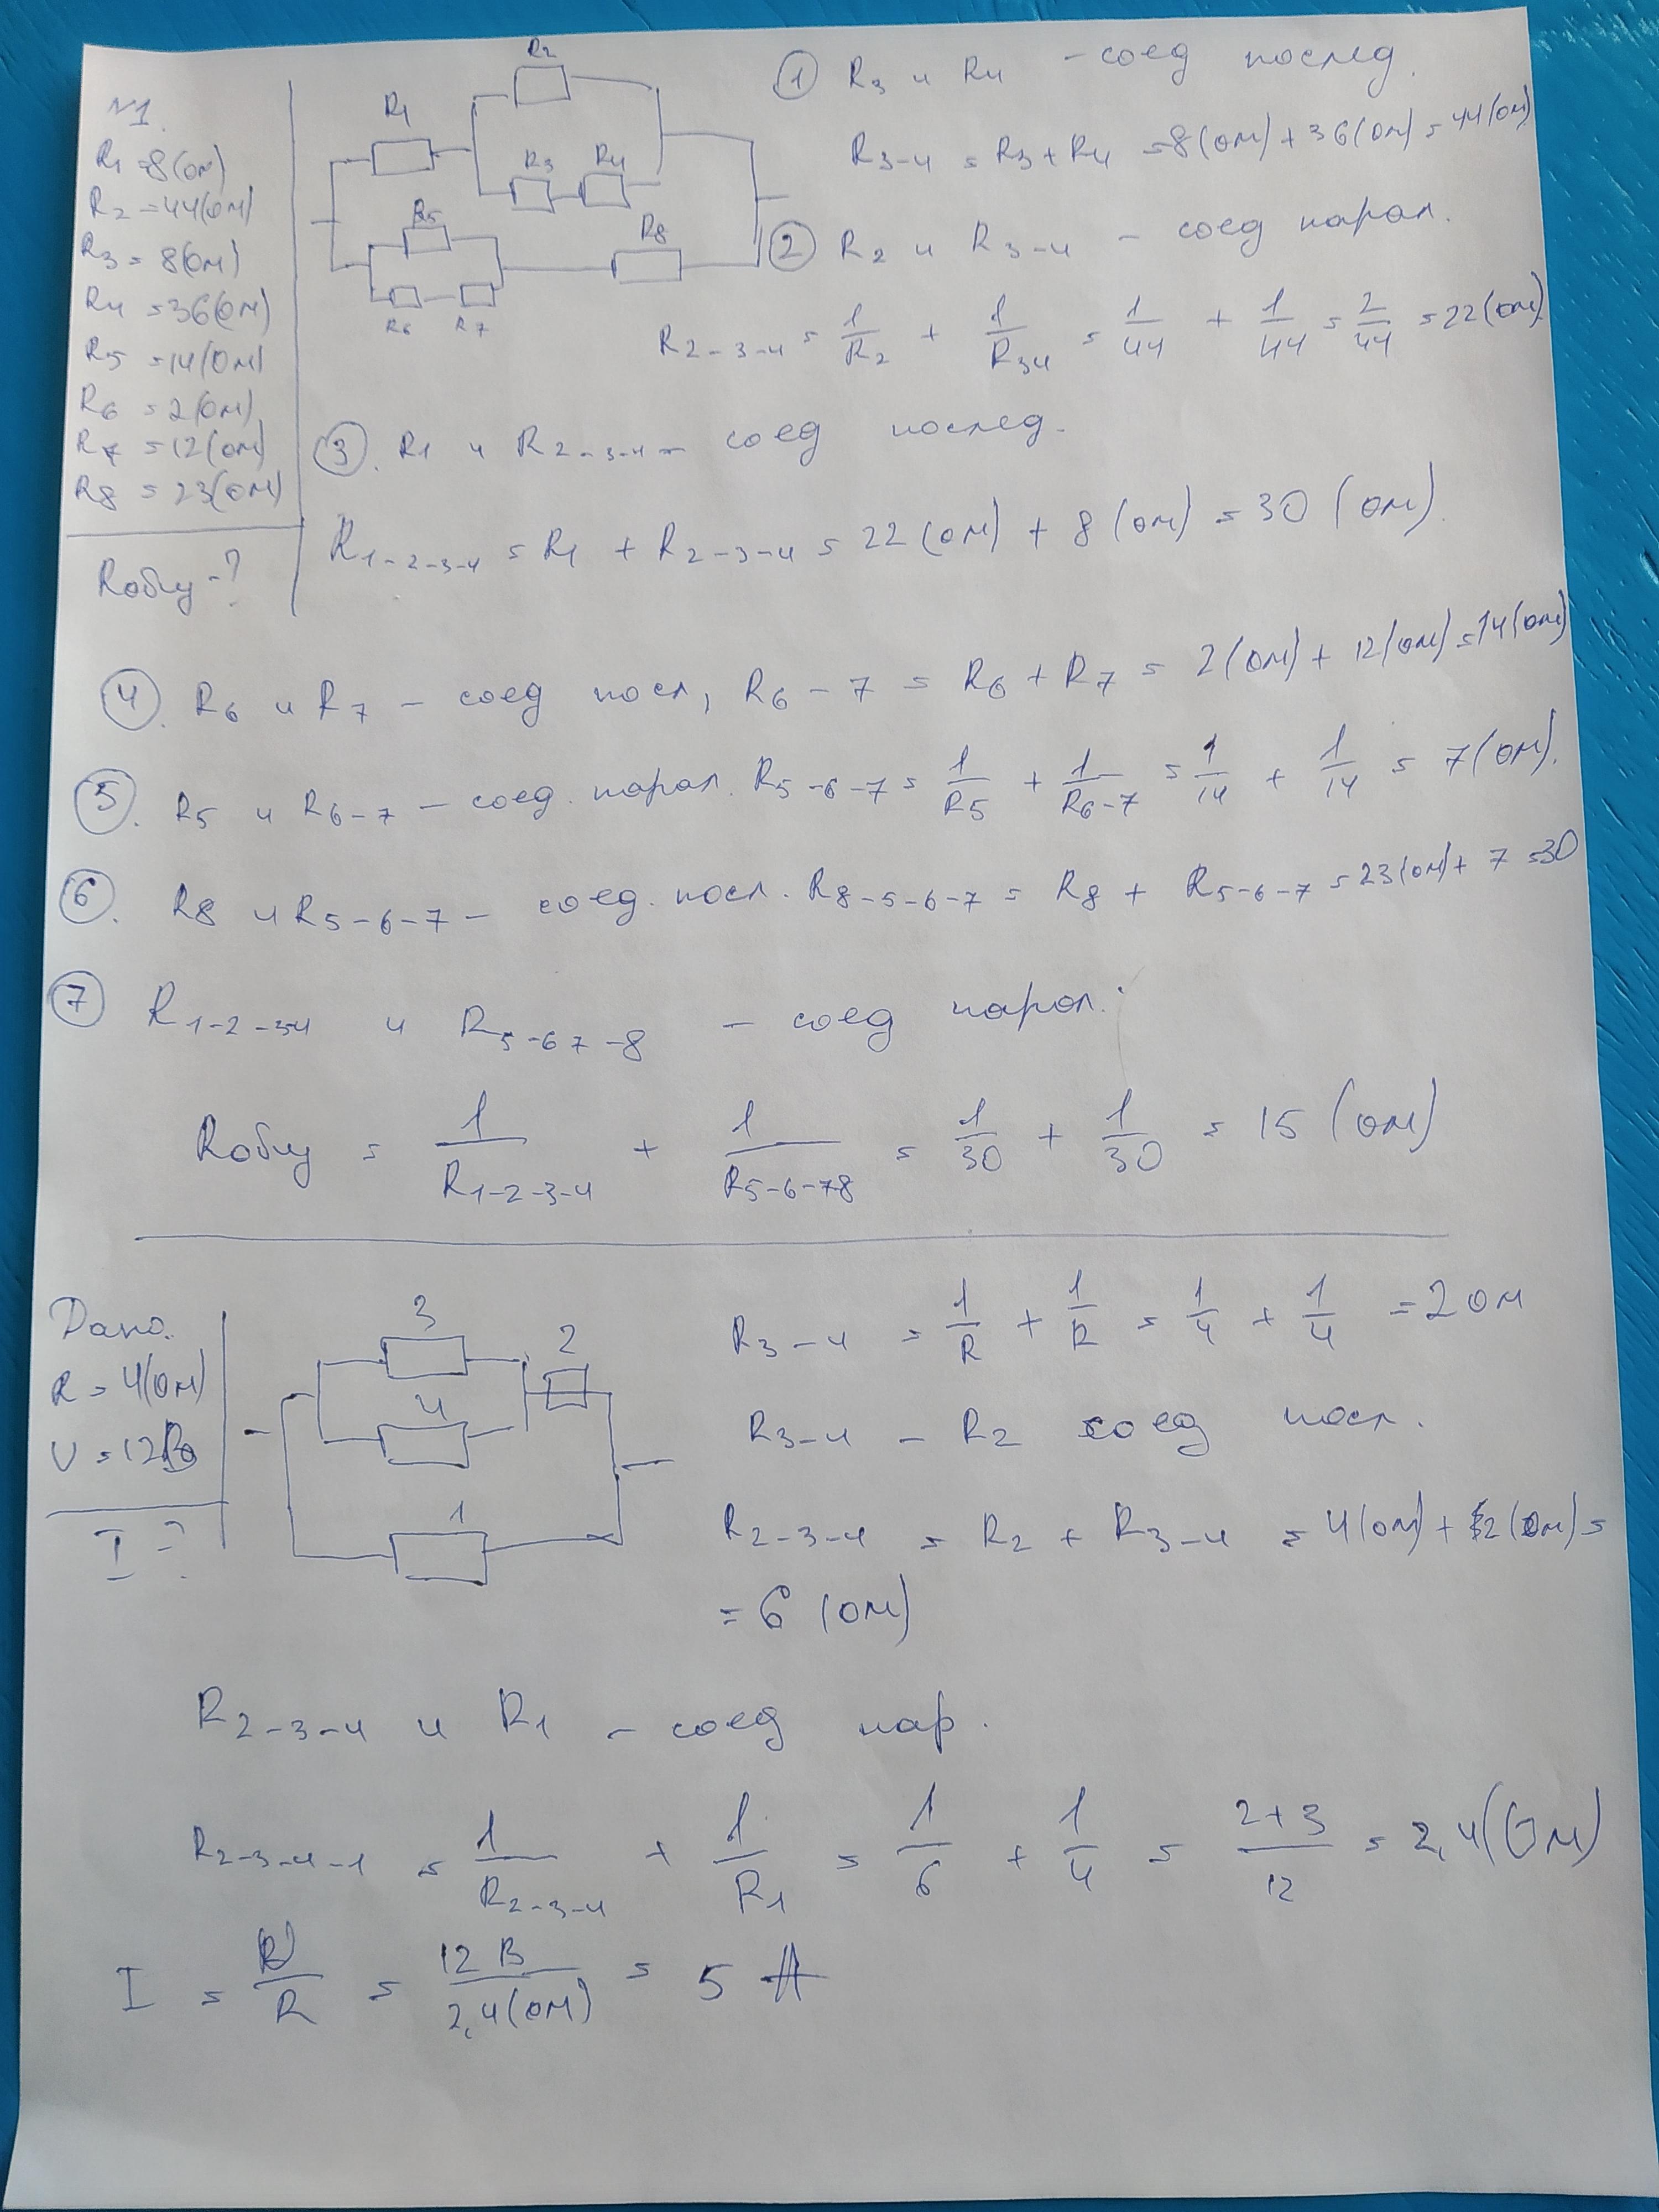 №1.
R1 = 8(Ом)
R2 = 44(Ом)
R3 = 8(Ом)
R4 = 36(Ом)
R5 = 14(Ом)
R6 = 2(Ом)
R7 = 12(Ом)
R8 = 23(Ом)
Rобщ - ?
R2
R1
R3 R4
R5
R8
R6 R7
① R3 и R4 - соед послед.
R3-4 = R3 + R4 = 8(Ом) + 36(Ом) = 44(Ом)
② R2 и R3-4 - соед парал.
R2-3-4 = 1/R2 + 1/R34 = 1/44 + 1/44 = 2/44 = 22(Ом).
③. R1 и R2-3-4 - соед послед.
R1-2-3-4 = R1 + R2-3-4 = 22(Ом) + 8(Ом) = 30 (Ом).
④. R6 и R7 - соед посл, R6-7 = R6 + R7 = 2(Ом) + 12(Ом) = 14(Ом)
⑤. R5 и R6-7 - соед. парал. R5-6-7 = 1/R5 + 1/R6-7 = 1/14 + 1/14 = 7(Ом).
⑥. R8 и R5-6-7 - соед. посл. R8-5-6-7 = R8 + R5-6-7 = 23(Ом) + 7 = 30
⑦ R1-2-34 и R5-67-8 - соед парал.
Rобщ = 1/R1-2-3-4 + 1/R5-6-78 = 1/30 + 1/30 = 15 (Ом)
Дано.
R = 4(Ом)
U = 12В
I - ?
3
2
4
1
R3-4 = 1/R + 1/R = 1/4 + 1/4 = 2 Ом
R3-4 - R2 соед посл.
R2-3-4 = R2 + R3-4 = 4(Ом) + 2(Ом) =
= 6 (Ом)
R2-3-4 и R1 - соед пар.
R2-3-4-1 = 1/R2-3-4 + 1/R1 = 1/6 + 1/4 = 2+3/12 = 2,4(Ом)
I = U/R = 12 В/2,4(Ом) = 5 А